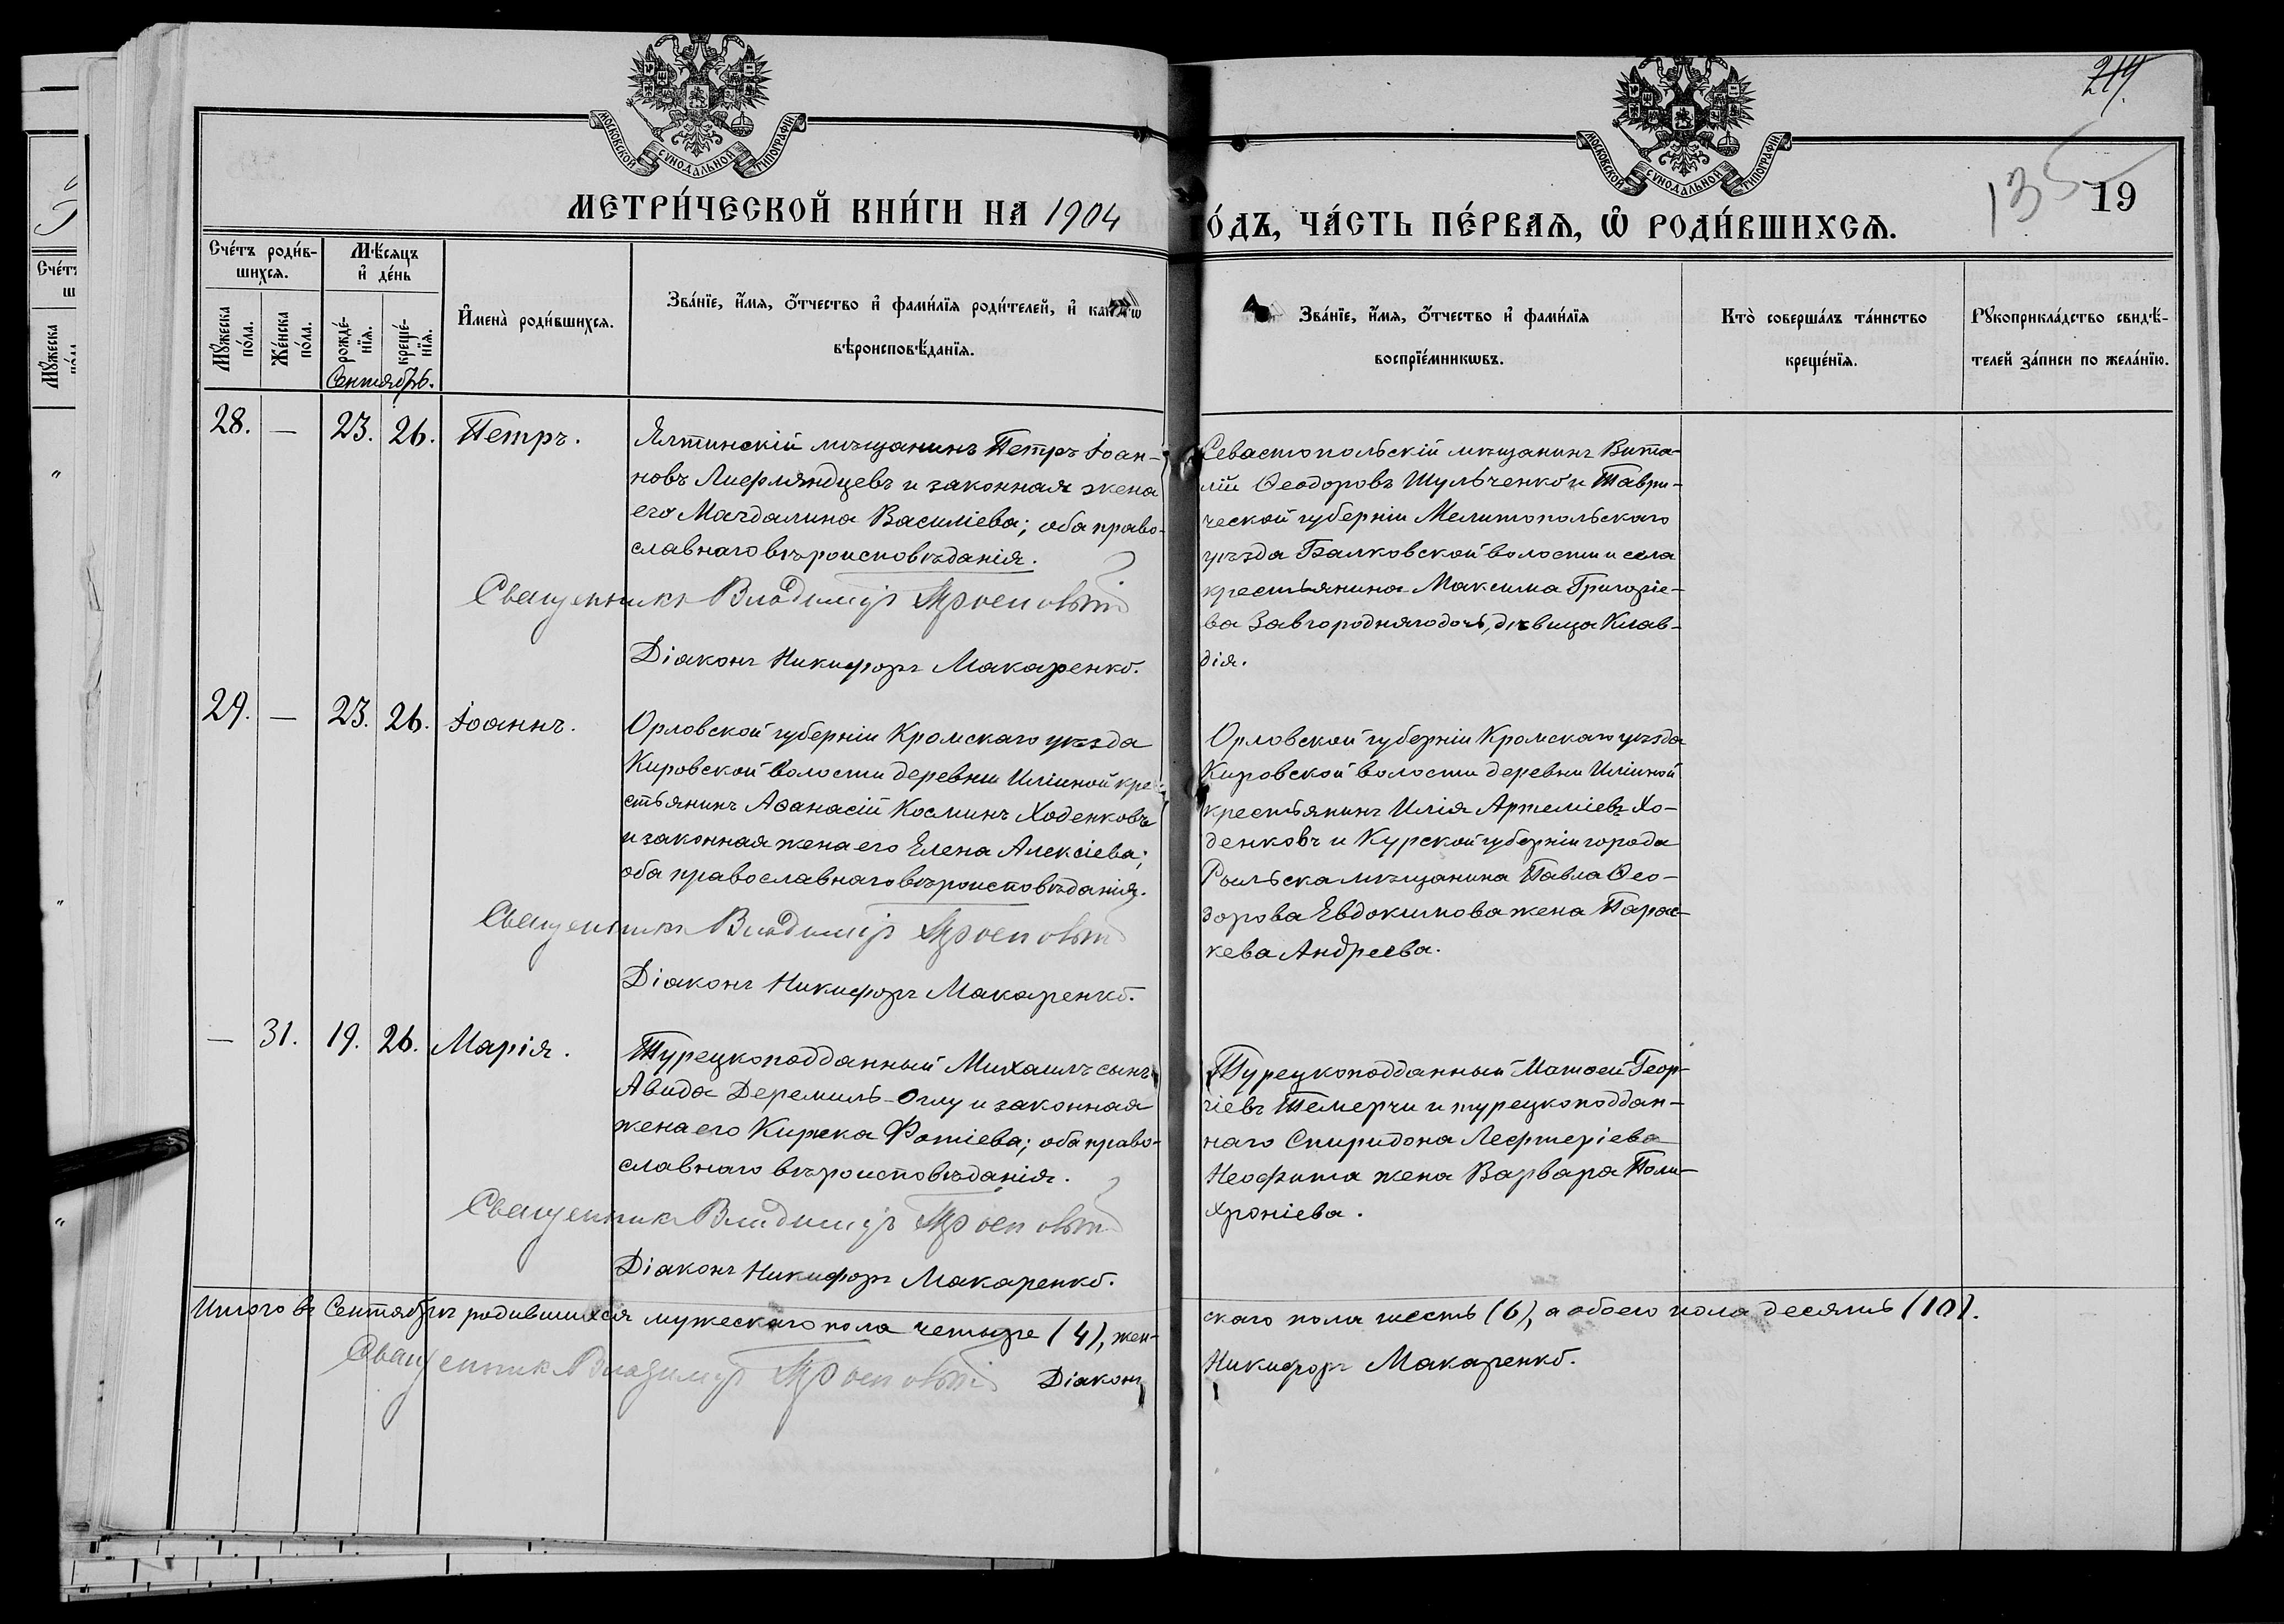 МОСКОВСКОЙ СѴНОДАЛЬНОЙ ТИПОГРАФІИ
МОСКОВСКОЙ СѴНОДАЛЬНОЙ ТИПОГРАФІИ
МЕТРИ́ЧЕСКОЙ КНИ́ГИ НА 1904
О́ДЪ, ЧА́СТЬ ПЕ́РВАЯ, Ѿ РОДИ́ВШИХСЯ.
135
19
Сче́тъ роди́в-
шихся.
Мѣ́сяцъ
и҆ де́нь
Мꙋ́жеска
по́ла.
Же́нска
по́ла.
рожде́-
нїѧ.
креще́-
нїѧ.
Сентябрь.
И҆мена̀ роди́вшихся.
Зва́нїе, и҆́мя, о҆́тчество и҆ фами́лїя роди́телей, и҆
вѣроисповѣ́данїя.
Зва́нїе, и҆́мя, о҆́тчество и҆ фами́лїя
воспрїе́мникѡвъ.
Кто̀ соверша́лъ та́инство
креще́нїя.
Рꙋкоприкла́дство свидѣ́-
телей за́писи по жела́нїю.
28. — 23. 26. Петръ.
Ялтинскій мѣщанинъ Петръ Іоан-
новъ Лифляндцевъ и законная жена
его Магдалина Василіева; оба право-
славнаго вѣроисповѣданія.
Священникъ Владиміръ
Діаконъ Никифоръ Макаренко.
Севастопольскій мѣщанинъ Вита-
лій Ѳеодоровъ Шульченко и Таври-
ческой губерніи Мелитопольскаго
уѣзда Балковской волости и села
крестьянина Максима Григоріе-
ва Завгородняго дочь, дѣвица Клав-
дія.
29. — 23. 26. Іоаннъ.
Орловской губерніи Кромскаго уѣзда
Кировской волости деревни Иліиной кре-
стьянинъ Аѳанасій Косминъ Ходенковъ
и законная жена его Елена Алексіева;
оба православнаго вѣроисповѣданія.
Священникъ Владиміръ
Діаконъ Никифоръ Макаренко.
Орловской губерніи Кромскаго уѣзда
Кировской волости деревни Иліиной
крестьянинъ Илія Артеміевъ Хо-
денковъ и Курской губерніи города
Рыльска мѣщанина Павла Ѳео-
дорова Евдокимова жена Парас-
кева Андреева.
— 31. 19. 26. Марія.
Турецкоподданный Михаилъ сынъ
Авида Деремиль-Оглу и законная
жена его Кирека Фотіева; оба право-
славнаго вѣроисповѣданія.
Священникъ Владиміръ
Діаконъ Никифоръ Макаренко.
Турецкоподданный Матѳей Геор-
гіевъ Темерчи и турецкоподдан-
наго Спиридона Лефтеріева
Неофита жена Варвара Поли-
хроніева.
Итого въ Сентябрѣ родившихся мужескаго пола четыре (4), жен-
скаго пола шесть (6), а обоего пола десять (10).
Священникъ Владиміръ
Діаконъ
Никифоръ Макаренко.